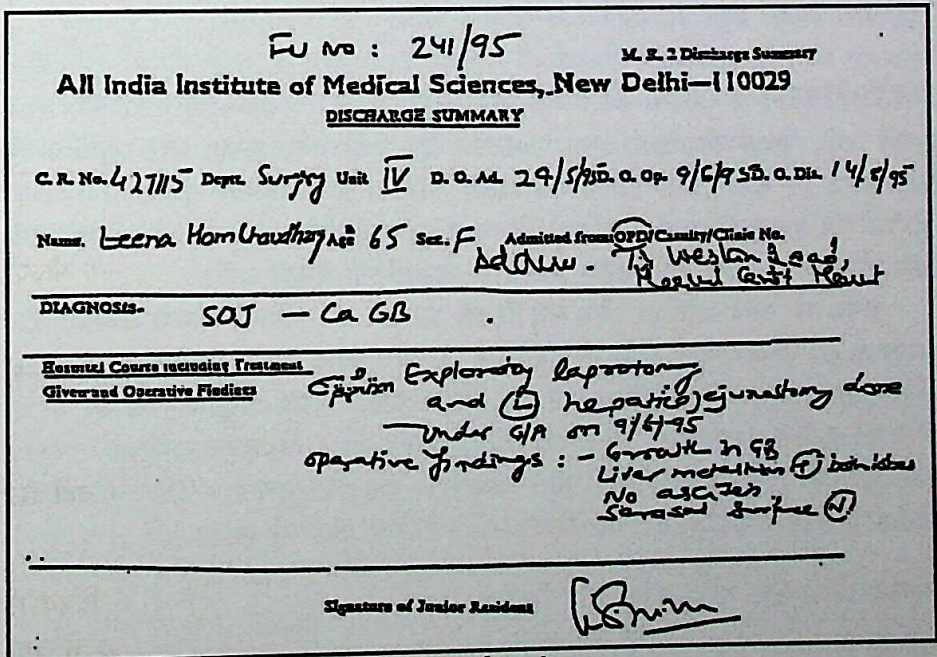 FU No : 241/95
M. R. 2 Discharge Summary
All India Institute of Medical Sciences, New Delhi—110029
DISCHARGE SUMMARY
C.R. No. 427115 Deptt. Surgery Unit IV D. O. Ad. 24/5/95 D. O. Op. 9/6/95 D. O. Dis. 14/ /95
Name. Leena Hom Chaudhary Age 65 Sex. F Admitted from: OPD/Casulty/Clinic No.
Address. Weston Road,
Cantt Meerut
DIAGNOSIS- SOJ — Ca GB
Hospital Course including Treatment Exploratory laprotomy
Given and Operative Findings and L hepaticojejunostomy done
under G/A on 9/6/95
operative findings : - Growth in GB
Liver metastasis + both lobes
No ascites
Serosal surface N
Signature of Junior Resident